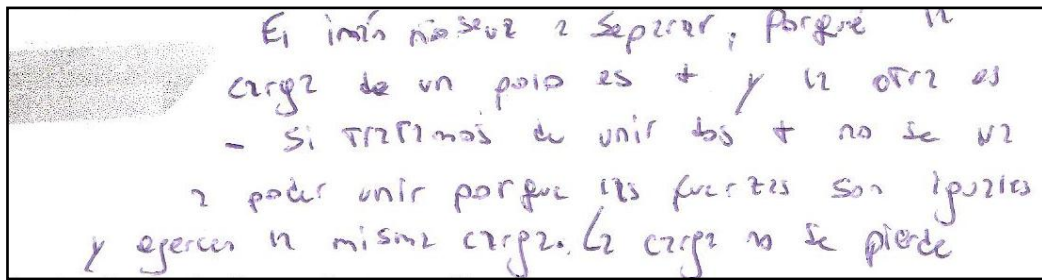 El imán no se va a separar, porque la
carga de un polo es + y la otra es
- Si tratamos de unir dos + no se va
a poder unir porque las fuerzas son iguales
y ejercen la misma carga. La carga no se pierde